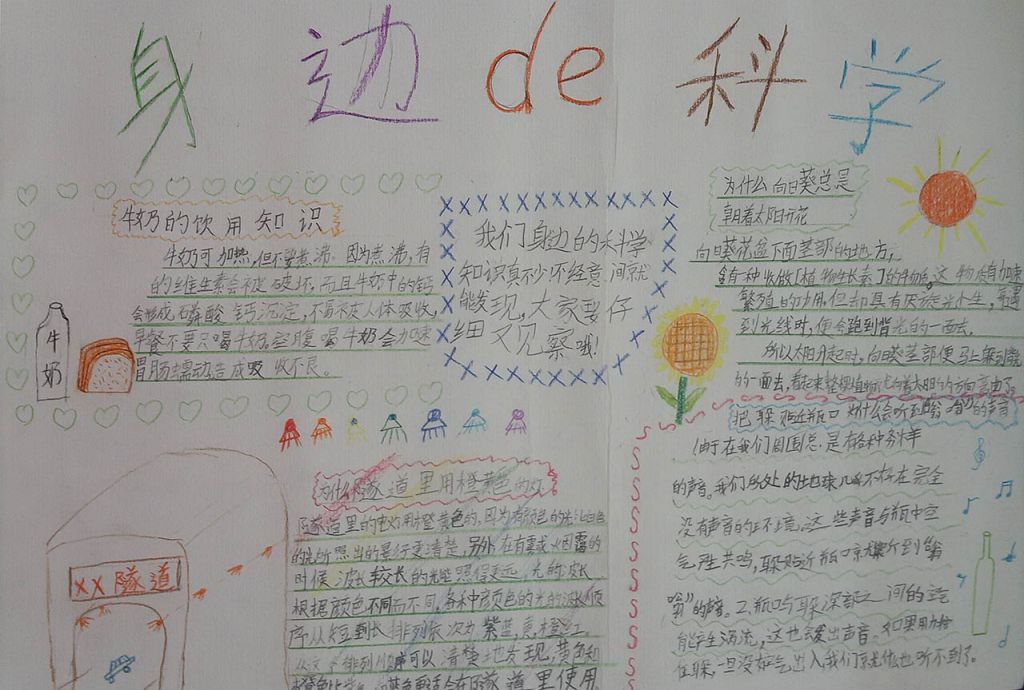 身边de科学
牛奶的饮用知识
牛奶可加热,但不要煮沸。因为煮沸,有
的维生素会被破坏,而且牛奶中的钙
会形成磷酸钙沉淀,不易被人体吸收,
早餐不要只喝牛奶,空腹喝牛奶会加速
胃肠蠕动,造成吸收不良。
牛
奶
我们身边的科学
知识真不少,不经意间就
能发现,大家要仔
细观察哦!
为什么向日葵总是
朝着太阳开花
向日葵花盘下面茎部的地方,
含有一种叫做“植物生长素”的物质。这物质有加速
繁殖的功用,但却具有厌旋光性,每遇
到光线时,便会跑到背光的一面去。
所以太阳升起时,向日葵茎部便马上躲到背光
的一面去,看起来整棵植物
把耳朵贴近瓶口为什么会听到“嗡嗡”的声音
1.由于在我们周围总是有各种各样
的声音。我们所处的地球几乎不存在完全
没有声音的环境。这些声音与瓶中空
气产生共鸣,耳朵贴近瓶口就能听到“嗡
嗡”的声音。2.瓶口与耳朵深部之间的气流
能产生涡流,这也会发出声音。如果用力捂
住耳朵,一旦没有空气出入我们就什么也听不到了。
为什么隧道里用橙黄色的灯
隧道里的电灯用橙黄色的,因为有颜色的光比白色
的光所照出的景行更清楚,另外在有雾或烟雾的
时候,波长较长的光能照得更远,光的波长
根据颜色不同而不同,各种颜色的光的波长顺
序从短到长排列依次为紫,蓝,黄,橙,红。
从这个排列顺序可以清楚地发现,黄色和
隧道里使用
XX隧道